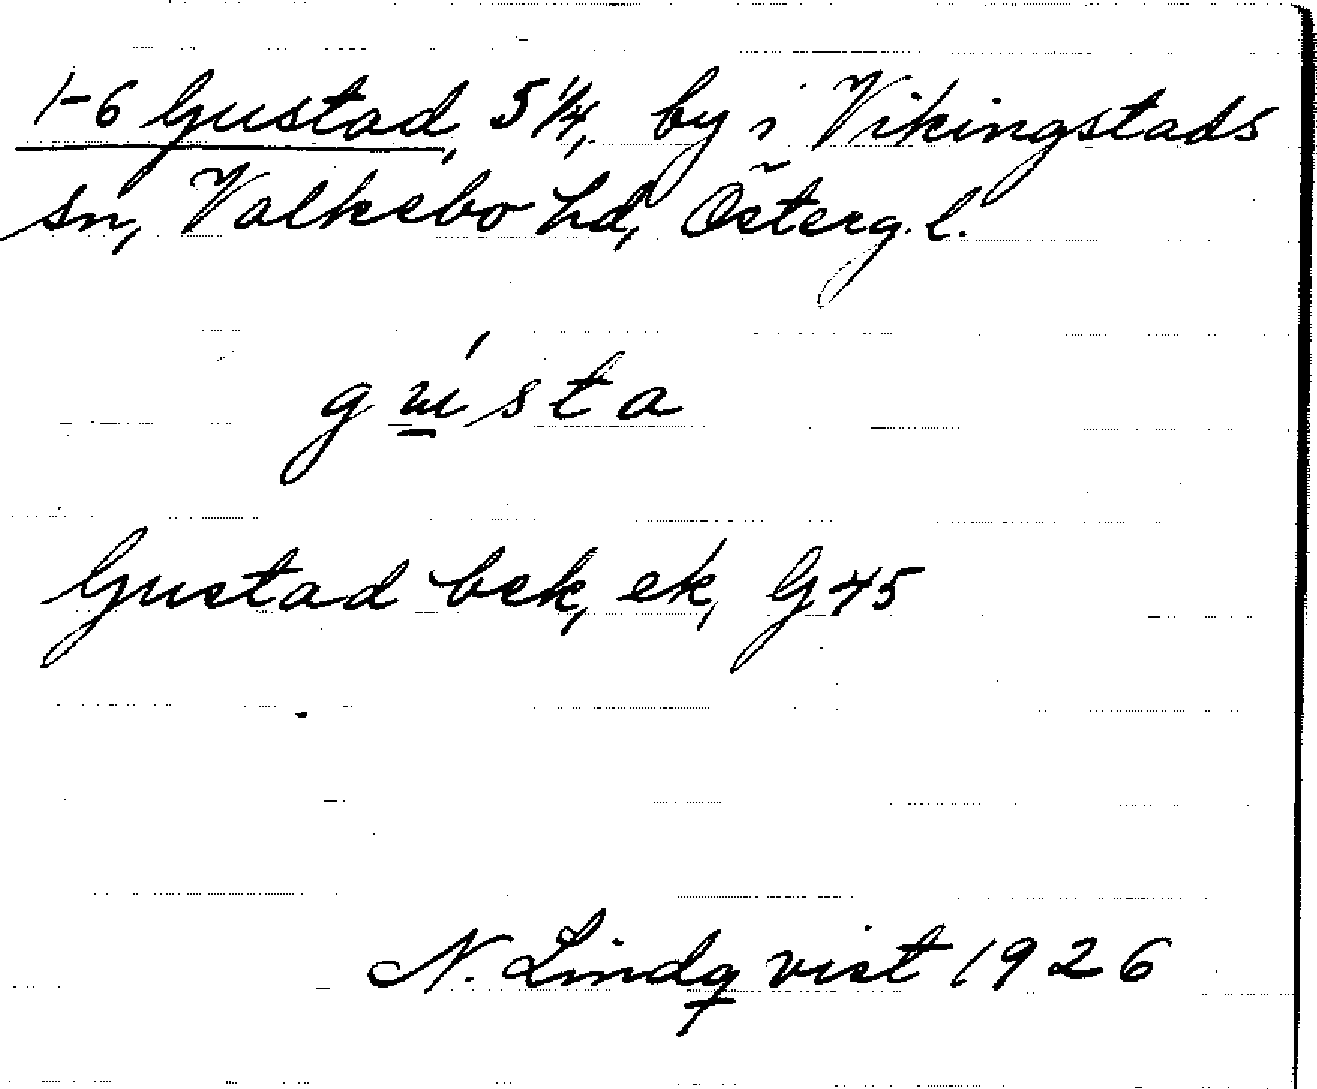 1-6 Gustad, 5 1/4, by i Vikingstads
sn, Valkebo hd, Österg. l.
gusta
Gustad bek, ek, G 45
N. Lindqvist 1926